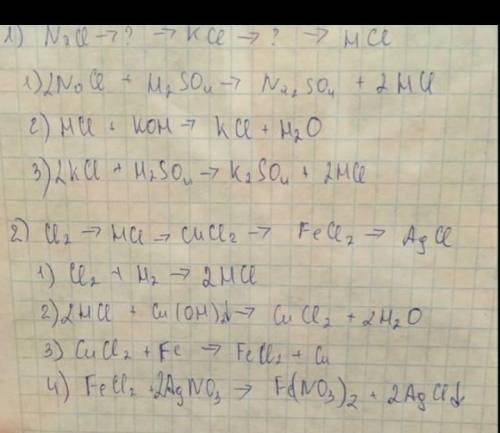 1) NaCl → ? → KCl → ? → HCl
1) 2NaCl + H₂SO₄ → Na₂SO₄ + 2HCl
2) HCl + KOH → KCl + H₂O
3) 2KCl + H₂SO₄ → K₂SO₄ + 2HCl
2) Cl₂ → HCl → CuCl₂ → FeCl₂ → AgCl
1) Cl₂ + H₂ → 2HCl
2) 2HCl + Cu(OH)₂ → CuCl₂ + 2H₂O
3) CuCl₂ + Fe → FeCl₂ + Cu
4) FeCl₂ + 2AgNO₃ → Fe(NO₃)₂ + 2AgCl↓